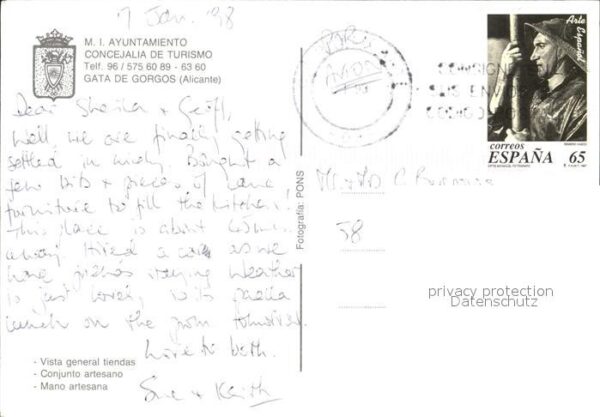 7 Jan. '98
M. I. AYUNTAMIENTO
CONCEJALIA DE TURISMO
Telf. 96 / 575 60 89 - 63 60
GATA DE GORGOS (Alicante)
Dear Sheila + Geoff,
Well, we are finally getting
settled in nicely. Bought a
few bits + pieces of cane
furniture to fill the kitchen!
This place is about
away. Hired a car as we
have
weather
is just lovely,
paella
lunch on the prom tomorrow.
Love to both.
Sue + Keith
- Vista general tiendas
- Conjunto artesano
- Mano artesana
Fotografía: PONS
POR
AVION
CONSIGNE
SUS ENVIOS
CODIGO
Arte Español
correos
ESPAÑA 65
58
privacy protection
Datenschutz